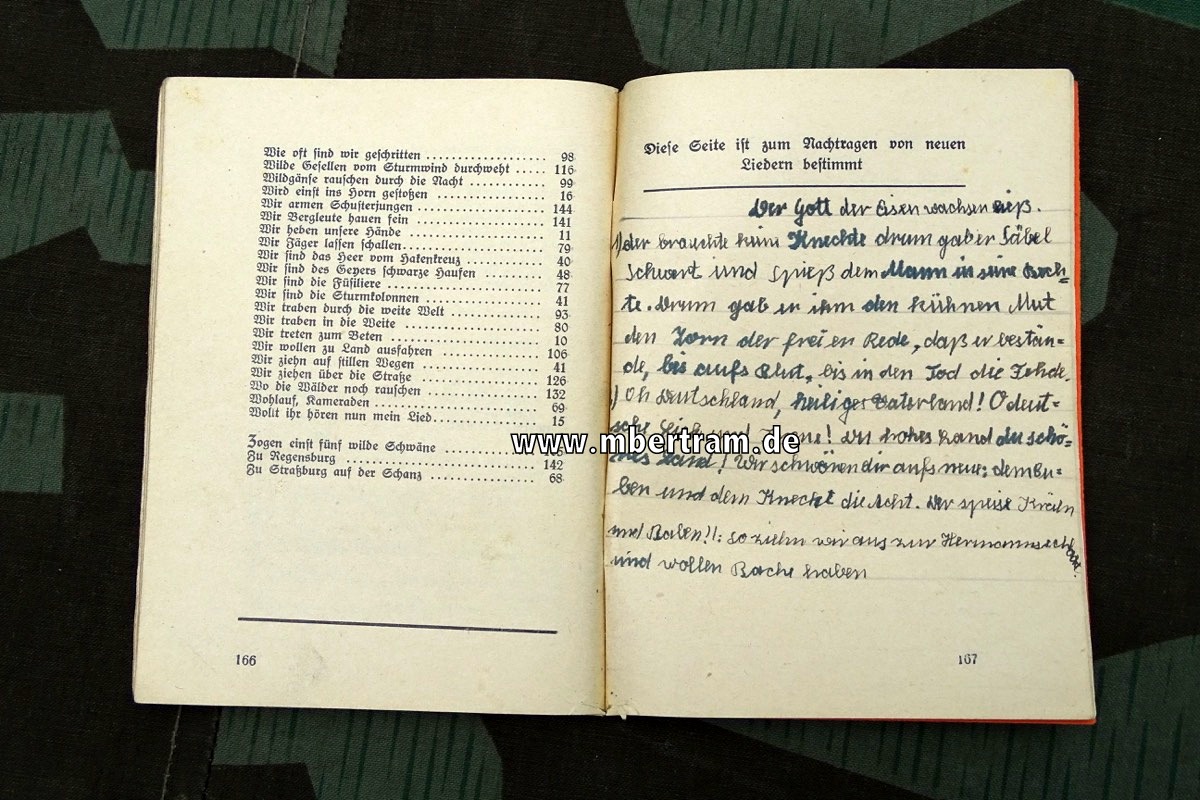 Wie oft sind wir geschritten .................. 98
Wilde Gesellen vom Sturmwind durchweht ..... 116
Wildgänse rauschen durch die Nacht ............ 99
Wird einst ins Horn gestoßen .................. 16
Wir armen Schusterjungen ................... 144
Wir Bergleute hauen fein .................... 141
Wir heben unsere Hände ..................... 11
Wir Jäger lassen schallen...................... 79
Wir sind das Heer vom Hakenkreuz ............ 40
Wir sind des Geyers schwarze Haufen .......... 48
Wir sind die Füsiliere ........................ 77
Wir sind die Sturmkolonnen .................. 41
Wir traben durch die weite Welt ............... 93
Wir traben in die Weite ...................... 80
Wir treten zum Beten ........................ 10
Wir wollen zu Land ausfahren ................ 106
Wir ziehn auf stillen Wegen .................. 41
Wir ziehen über die Straße ................... 126
Wo die Wälder noch rauschen ................. 132
Wohlauf, Kameraden ......................... 69
Wollt ihr hören nun mein Lied................. 15
Zogen einst fünf wilde Schwäne
Zu Regensburg ............................. 142
Zu Straßburg auf der Schanz ................. 68
166
Diese Seite ist zum Nachtragen von neuen
Liedern bestimmt
Der Gott der Eisen wachsen ließ.
1) der brauchte keine Knechte drum gab er Säbel
Schwert und Spieß dem Mann in seine Rech=
te. Drum gab er ihm den kühnen Mut
den Zorn der freien Rede, daß er bestän=
de, bis aufs Blut, bis in den Tod die Fehde.
) Oh Deutschland, heiliges Vaterland! O deut=
sche Lieb und Treue! Du hohes Land du schö=
nes Land! Wir schwören dir aufs neue: dem Bu=
ben und dem Knecht die Acht. Der speise Krähn
und Raben!: so ziehn wir aus zur Hermannsschlacht
und wollen Rache haben
167
www.mbertram.de